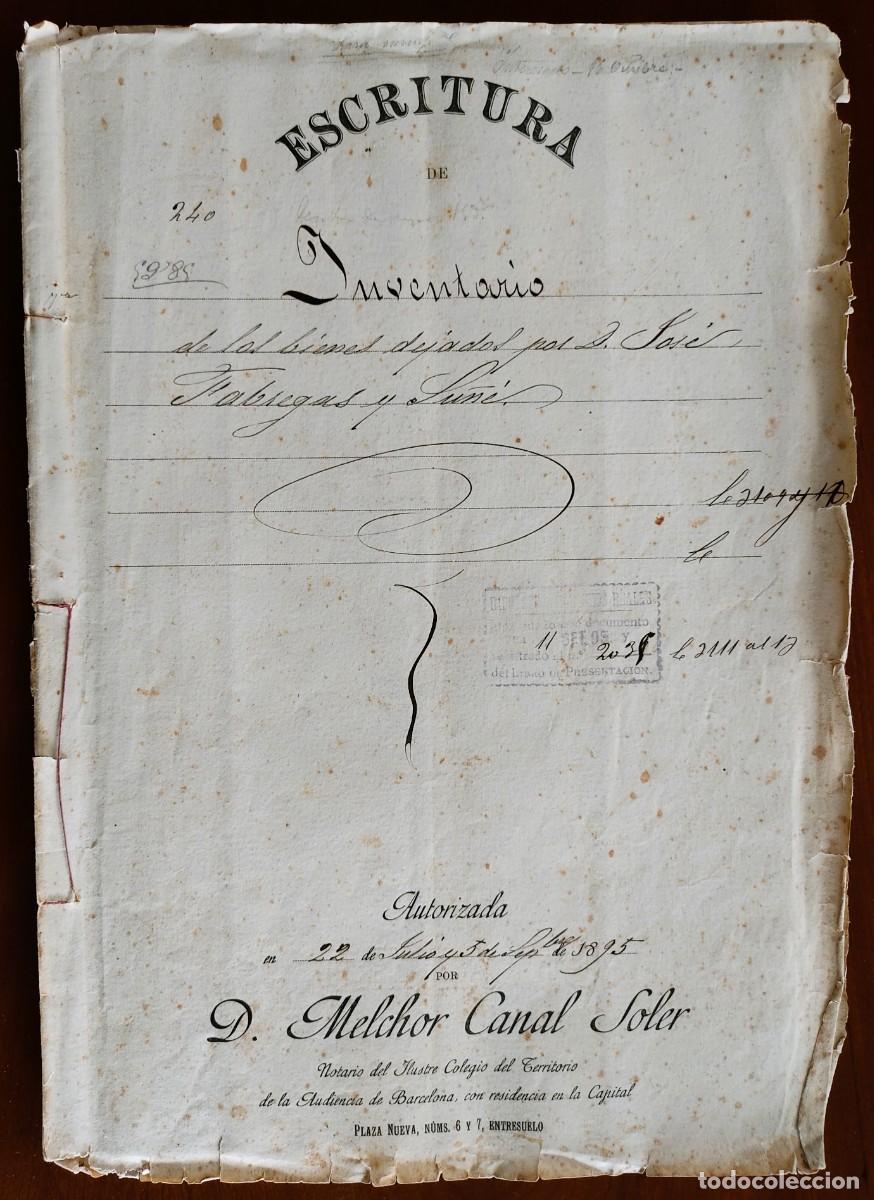 ESCRITURA
DE
240
Inventario
de los bienes dejados por D. José
Fabregas y Suñé.
le
DERECHOS REALES
documento
SELOS y
11 2035 le 2111 al 12
del LIBRO DE PRESENTACIÓN.
Autorizada
en 22 de Julio y 5 de Sepbre de 1895
POR
D. Melchor Canal Soler
Notario del Ilustre Colegio del Territorio
de la Audiencia de Barcelona, con residencia en la Capital
PLAZA NUEVA, NÚMS. 6 Y 7, ENTRESUELO
todocoleccion